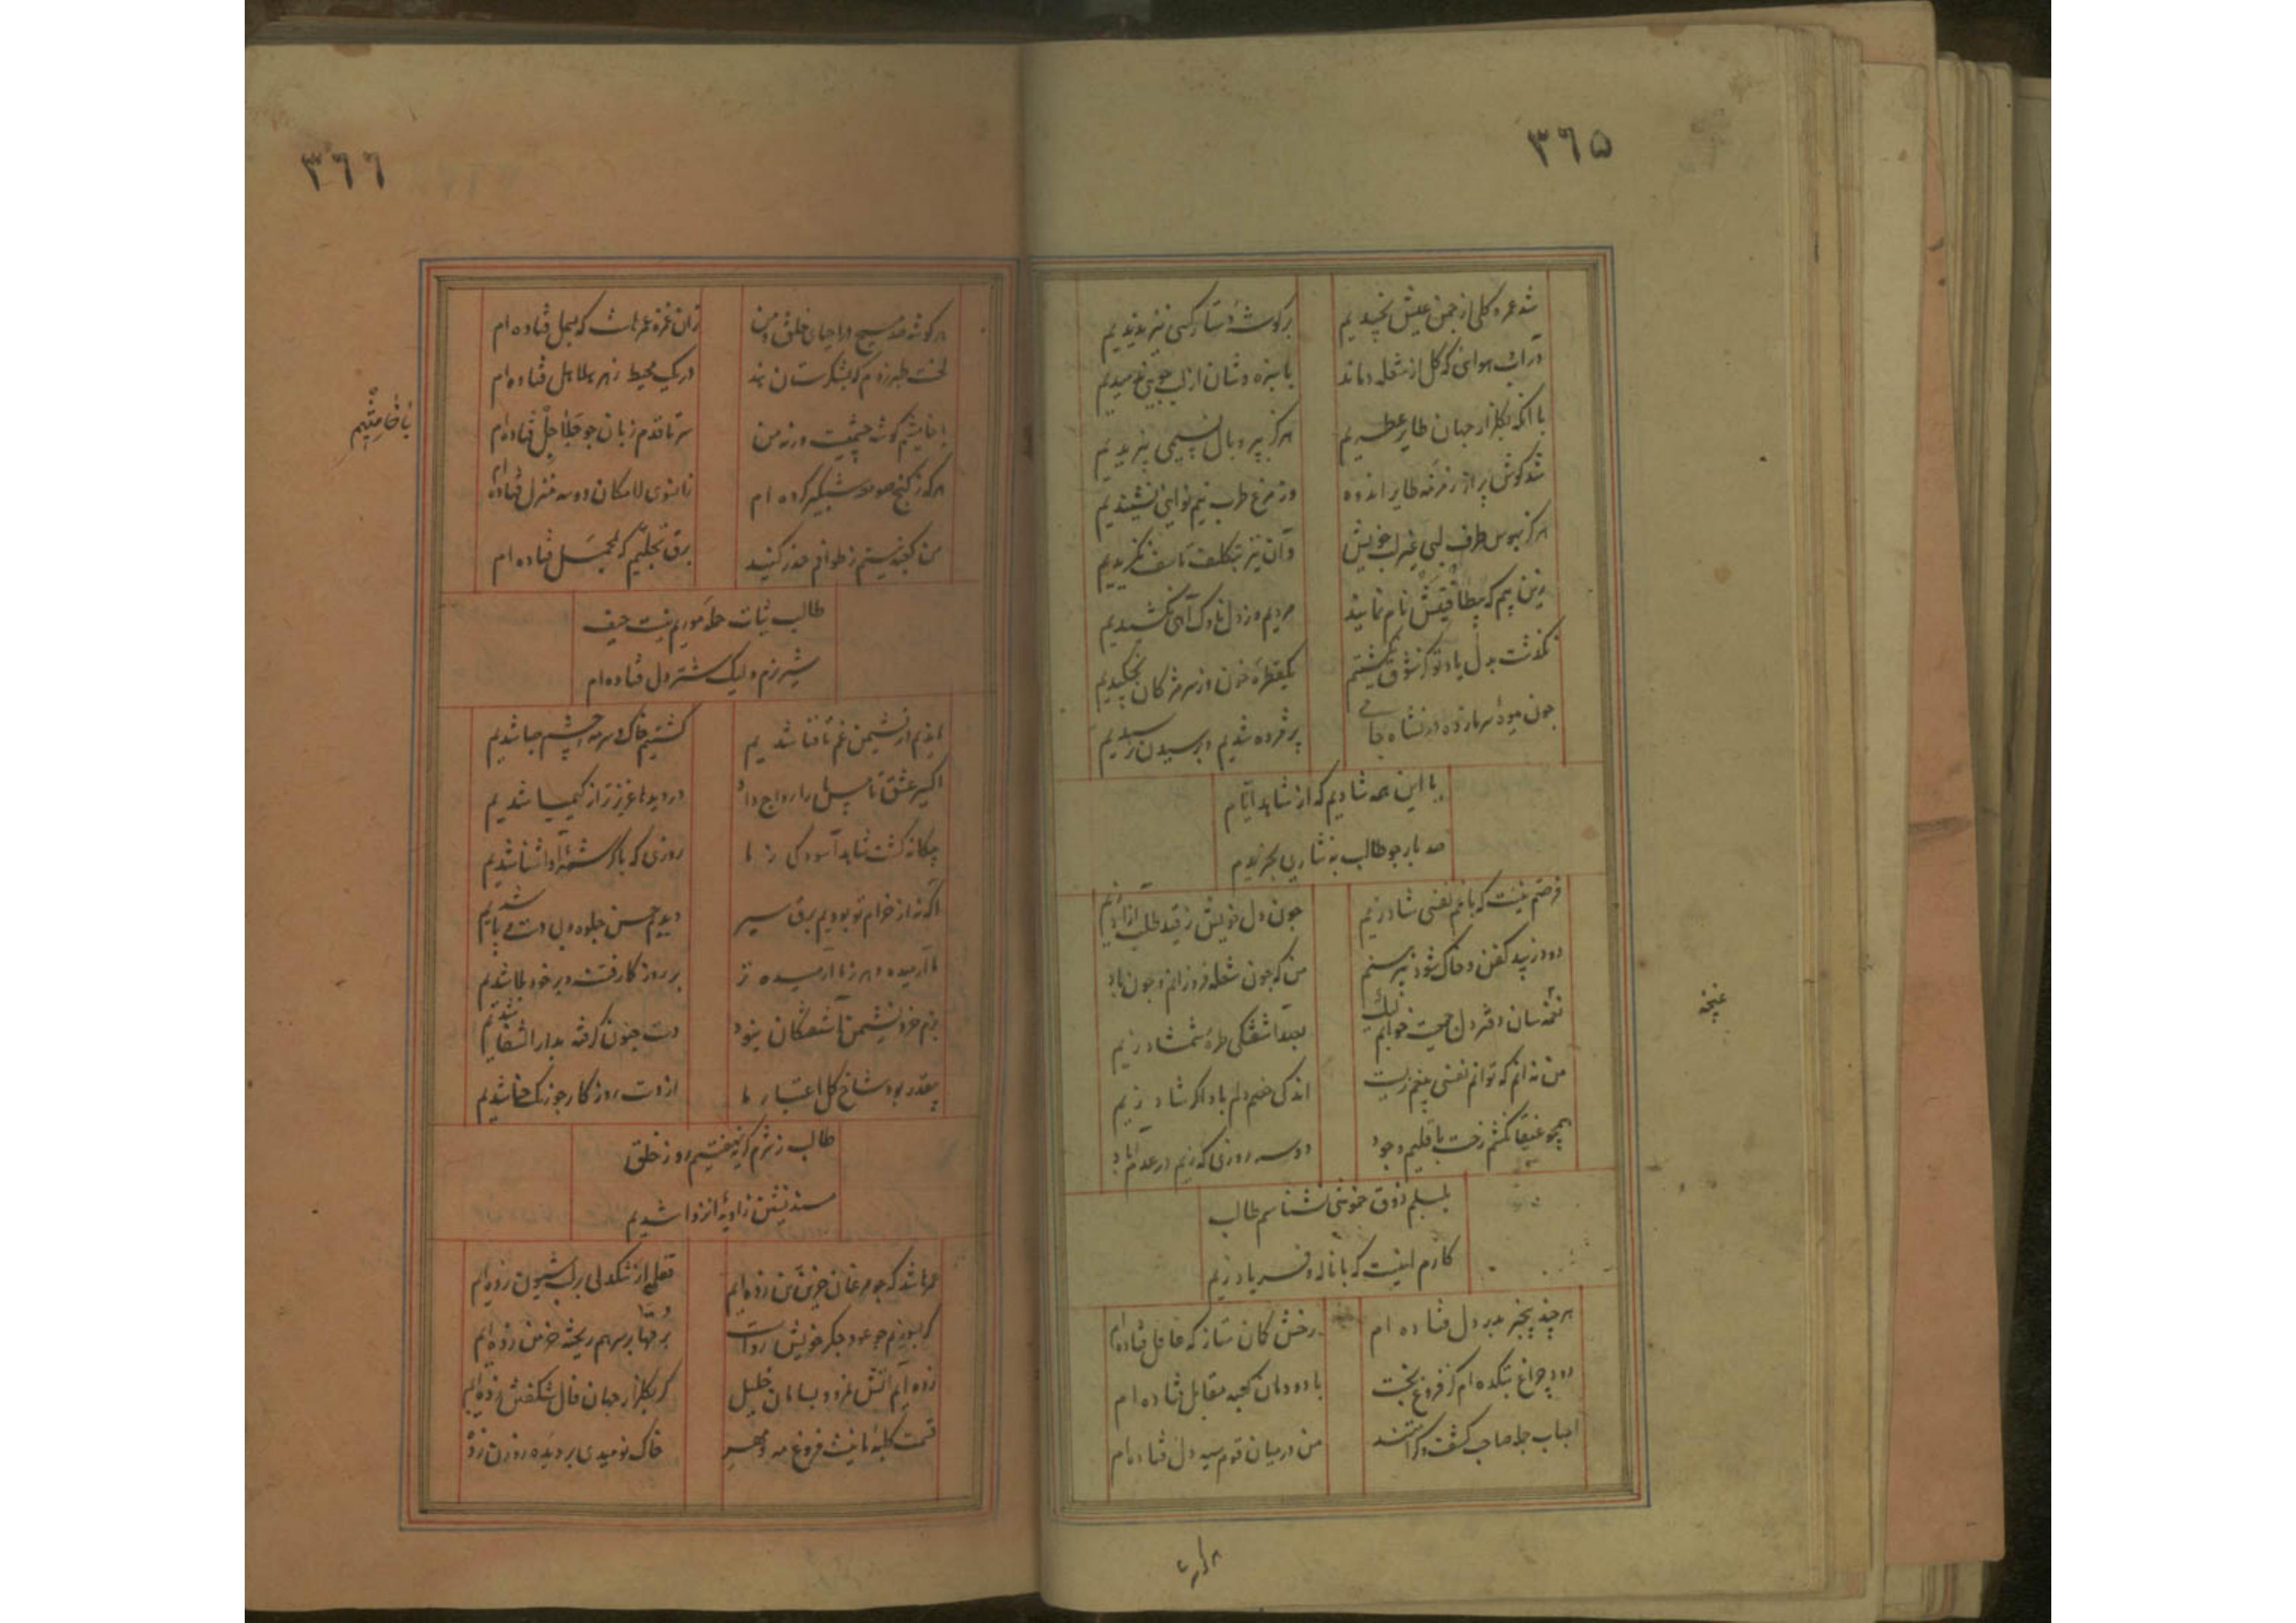 ٣٦٥
شد عمر و گلی از چمن عیش نچیدیم
بر گوشهٔ دستار کسی نیز ندیدیم
در آب هوائی که گل از شعله دماند
با سبزه وشان از لب جویی ندمیدیم
با آنکه بگلزار جهان طایر عطریم
هرگز بپر و بال نسیمی نپریدیم
شد گوش پر از زمزمه طایر اندوه
وز مرغ طرب نیم نوایی نشنیدیم
هرگز بهوس طرف لبی غیر لب خویش
وآن نیز بتکلف تاسف نگزیدیم
زین بیم که بیطاقتیش نام نمایند
مردیم و ز دل ناوک آهی نکشیدیم
نگذشت بدل یاد تو کز شوق نگشتیم
یکقطرهٔ خون وز سر مژگان نچکیدیم
چون میوهٔ سرمازده در نشاه خامی
پژمرده شدیم و برسیدن نرسیدیم
با این همه شادیم که از شاهد ایام
صد بار چو طالب به نثاری نخریدیم
فرضم نیست که با غم نفسی شاد زیم
چون دل خویش ز قید طلب آزاد زیم
دود زاید کفن و خاک شود زیر سرم
من که چون شعله فروزانم و چون باد
غنچه سان دفتر دل جمعیت خوانم لیک
بصد آشفتگی طرهٔ شمشاد زیم
من نه آنم که توانم نفسی بیغم زیست
اندکی خصم دلم باد اگر شاد زیم
همچو عنقا نکشم رخت باقلیم وجود
دو سه روزی که زیم در عدم آباد
بلبلم ذوق خموشی نشناسم طالب
کارم اینست که با ناله و فریاد زیم
هر چند بیخبر بدر دل فتاده ام
رخش کان متاز که غافل فتاده ام
دود چراغ بتکده ام کز فروغ بخت
با دودمان کعبه مقابل فتاده ام
احباب جمله صاحب کشف و کرامتند
من در میان قوم سیه دل فتاده ام
غنچه
هر گوشه
٣٦٦
هر گوشه صد مسیح در احیای خلق و من
زان غمزه عمرهاست که بسمل فتاده ام
لخت طبرزدم که بشکرستان هند
در یک محیط زهر هلاهل فتاده ام
با خامشیم گوشه چشمیست ورنه من
سر تا قدم زبان چو جلاجل فتاده ام
هر گه ز کنج صومعه شبگیر کرده ام
زانسوی لامکان دو سه منزل فتاده ام
من کعبه نیستم ز طوافم حذر کنید
برق تجلیم که بمحمل فتاده ام
با خامشیم
طالب ثبات حملهٔ مورم نیست حیف
شیر نرم ولیک شتر دل فتاده ام
راندیم از نشیمن غم تا فنا شدیم
گشتیم خاک و سرمهٔ چشم صبا شدیم
اکسیر عشق تا مس ما را رواج داد
در دیدها عزیزتر از کیمیا شدیم
بیگانه گشت شاهد آسودگی ز ما
روزی که با کرشمهٔ او آشنا شدیم
آگه نه از خرام تو بودیم برق سیر
دیدیم حسن جلوه و بی دست و پا شدیم
ما آرمیده دهر ز ما آرمیده تر
بر روز کار فتنه و بر خود بلا شدیم
بزم خرد نشیمن آشفتگان نبود
دست جنون گرفته بدار الشفا شدیم
بیقدر بود شاخ گل اعتبار ما
از دست روزگار چو رنگ حنا شدیم
طالب ز شرم گر بنهفتیم رو ز خلق
مسند نشین زاویهٔ انزوا شدیم
عمرها شد که چو مرغان حزین تن زده ایم
قفلی از تنگدلی بر لب شیون زده ایم
گر بسوزیم چو عود جگر خویش رواست
برقها بر سر هم ریخته خرمن زده ایم
زده ایم آتش نمرود بسامان خلیل
گر بگلزار جهان فال شکفتن زده ایم
قسمت کلبهٔ ما نیست فروغ مه و مهر
خاک نومیدی بر دیده روزن زده